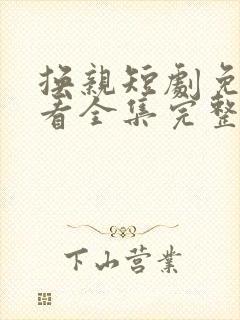 换親短劇免
看全集完整
下山营業